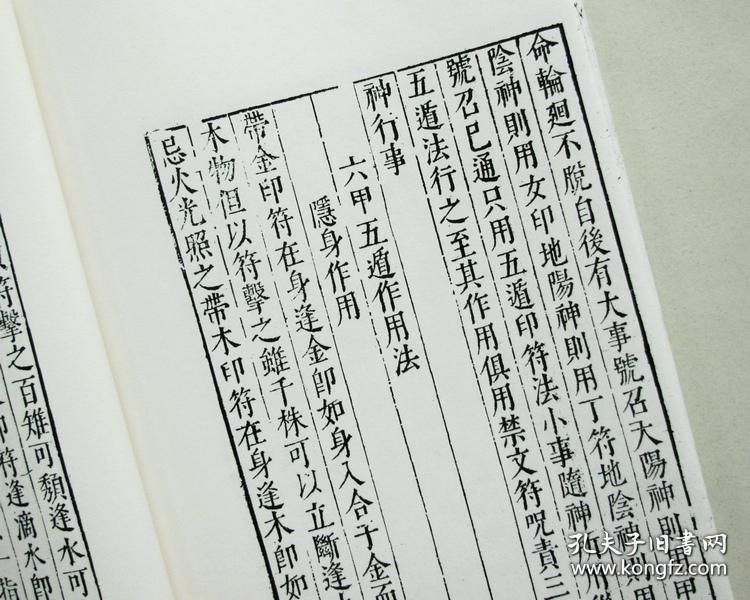 命輪廻不脫自後有大事號召天陽神則用甲
陰神則用女印地陽神則用丁符地陰神則用
號召已通只用五遁印符法小事隨神所用後
五遁法行之至其作用俱用禁文符呪責三
神行事
六甲五遁作用法
隱身作用
帶金印符在身逢金即如身入合于金而
木物但以符擊之雖千株可以立斷逢
忌火光照之帶木印符在身逢木即如
符擊之百雉可頹逢水可
符逢滴水即
孔夫子旧书网
www.kongfz.com